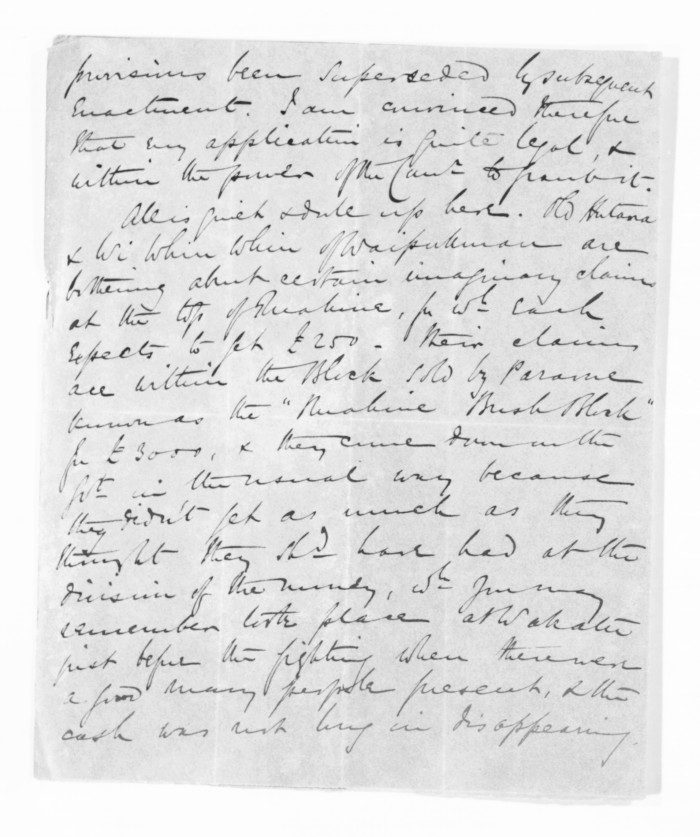 provisions been superseded by subsequent
enactment. I am convinced therefore
that my application is quite legal, &
within the power of the Govt to grant it.
All is quiet & dull up here. Old Hutana
& Wi Whin Whin of Waipukurau are
bothering about certain imaginary claims
at the top of Ruahine, for wh each
expects to get £250 - Their claims
are within the Block sold by Paraone
known as the "Ruahine Bush Block"
for £3000, & they come down on the
Govt in the usual way because
they didn't get as much as they
thought they shd have had at the
division of the money, wh you may
remember took place at Wakatu
just before the fighting when there were
a good many people present, & the
cash was not long in disappearing.